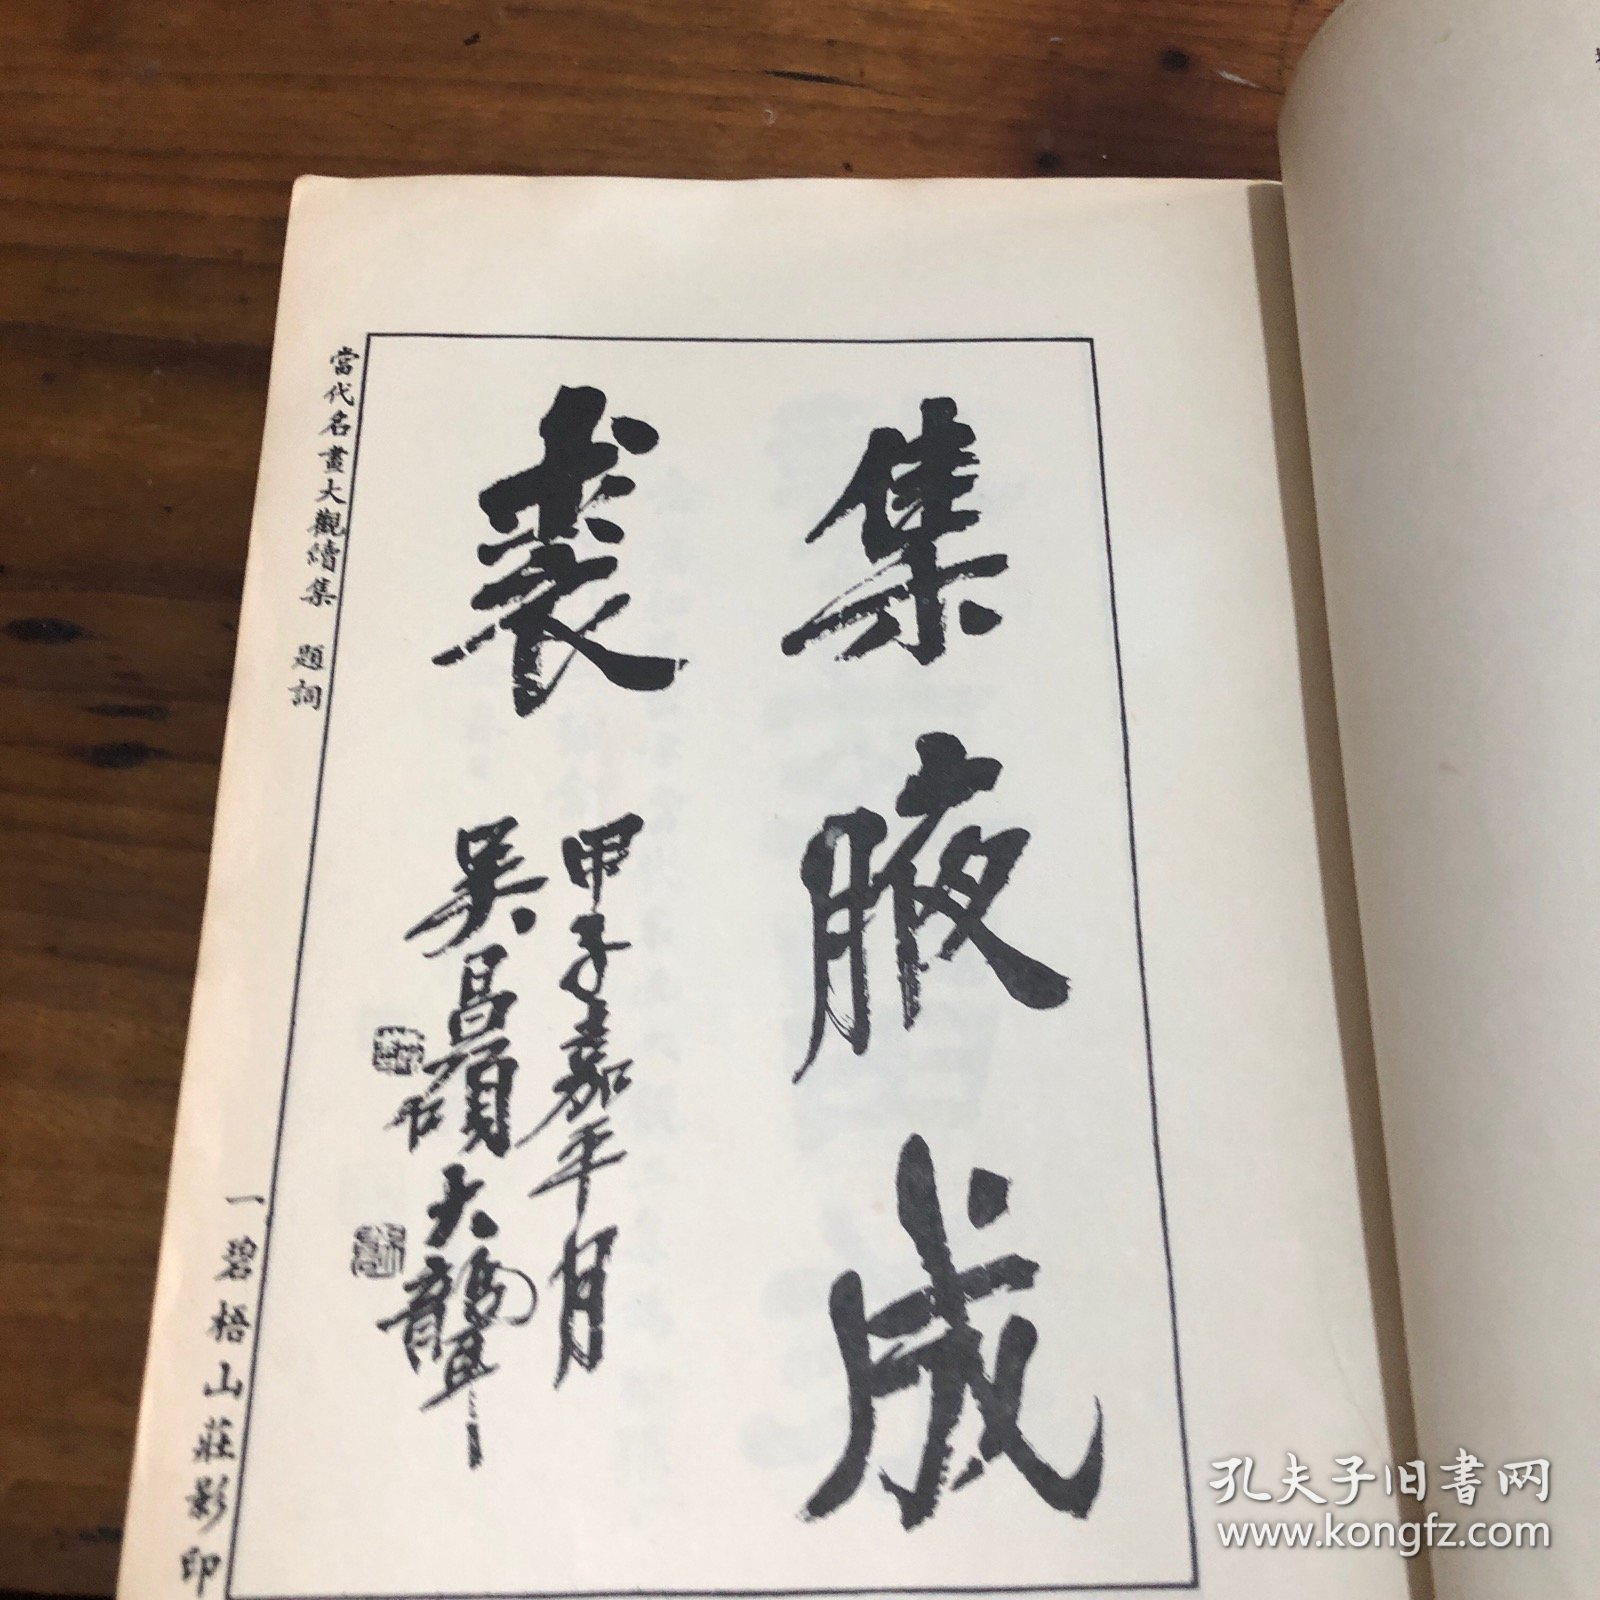 集腋成
裘
甲子嘉平月
吳昌碩大聾
當代名畫大觀續集 題詞
一 碧梧山莊影印
孔夫子旧书网
www.kongfz.com